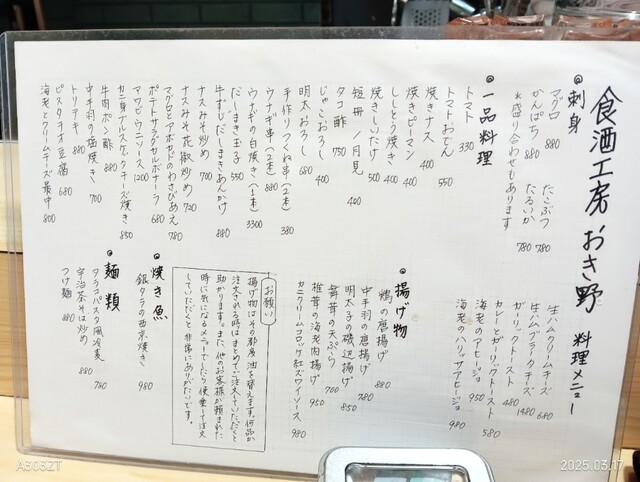 食酒工房 おき野 料理メニュー
◎刺身
マグロ 880
かんぱち 880
*盛り合わせもあります
たこぶつ 780
たるいか 780
◎一品料理
トマト 330
トマトおでん 550
焼きナス 400
焼きピーマン 400
ししとう焼き 400
焼きしいたけ 500
短冊／月見 400
タコ酢 750
じゃこおろし 400
明太おろし 680
手作りつくね串(2本) 380
ウナギ串(2本) 880
ウナギの白焼き(1本) 3300
だしまき玉子 550
牛すじだしまきあんかけ 880
ナスみそ炒め 700
ナスみそ花椒炒め 720
マグロとアボカドのわさびあえ 780
ポテトサラダカルボナーラ 680
アワビウニソース 1200
カニ身ブルスケッタチーズ焼き 850
牛肉ポン酢 880
中手羽の塩焼き 700
トリアキ 880
ピスタチオ豆腐 680
海老とクリームチーズ最中 800
生ハムクリームチーズ 680
生ハムブラータチーズ 1480
ガーリックトースト 480
カレーとガーリックトースト 580
海老のアヒージョ 950
海老のハリッサアヒージョ 980
◎揚げ物
鶏の唐揚げ 880
中手羽の唐揚げ 780
明太子の磯辺揚げ 850
舞茸の天ぷら 700
椎茸の海老肉揚げ 950
カニクリームコロッケ紅ズワイソース 980
お願い
揚げ物はその都度油を替えます。何品か
注文される時はまとめてご注文していただくと
助かります。また、他のお客様が頼まれた
時に気になるメニューでしたら便乗して注文
していただくと非常にありがたいです。
◎焼き魚
銀タラの西京焼き 980
◎麺類
タラコパスタ風冷製 780
宇治茶そば炒め 880
つけ麺 880
A303ZT
2025.03.17